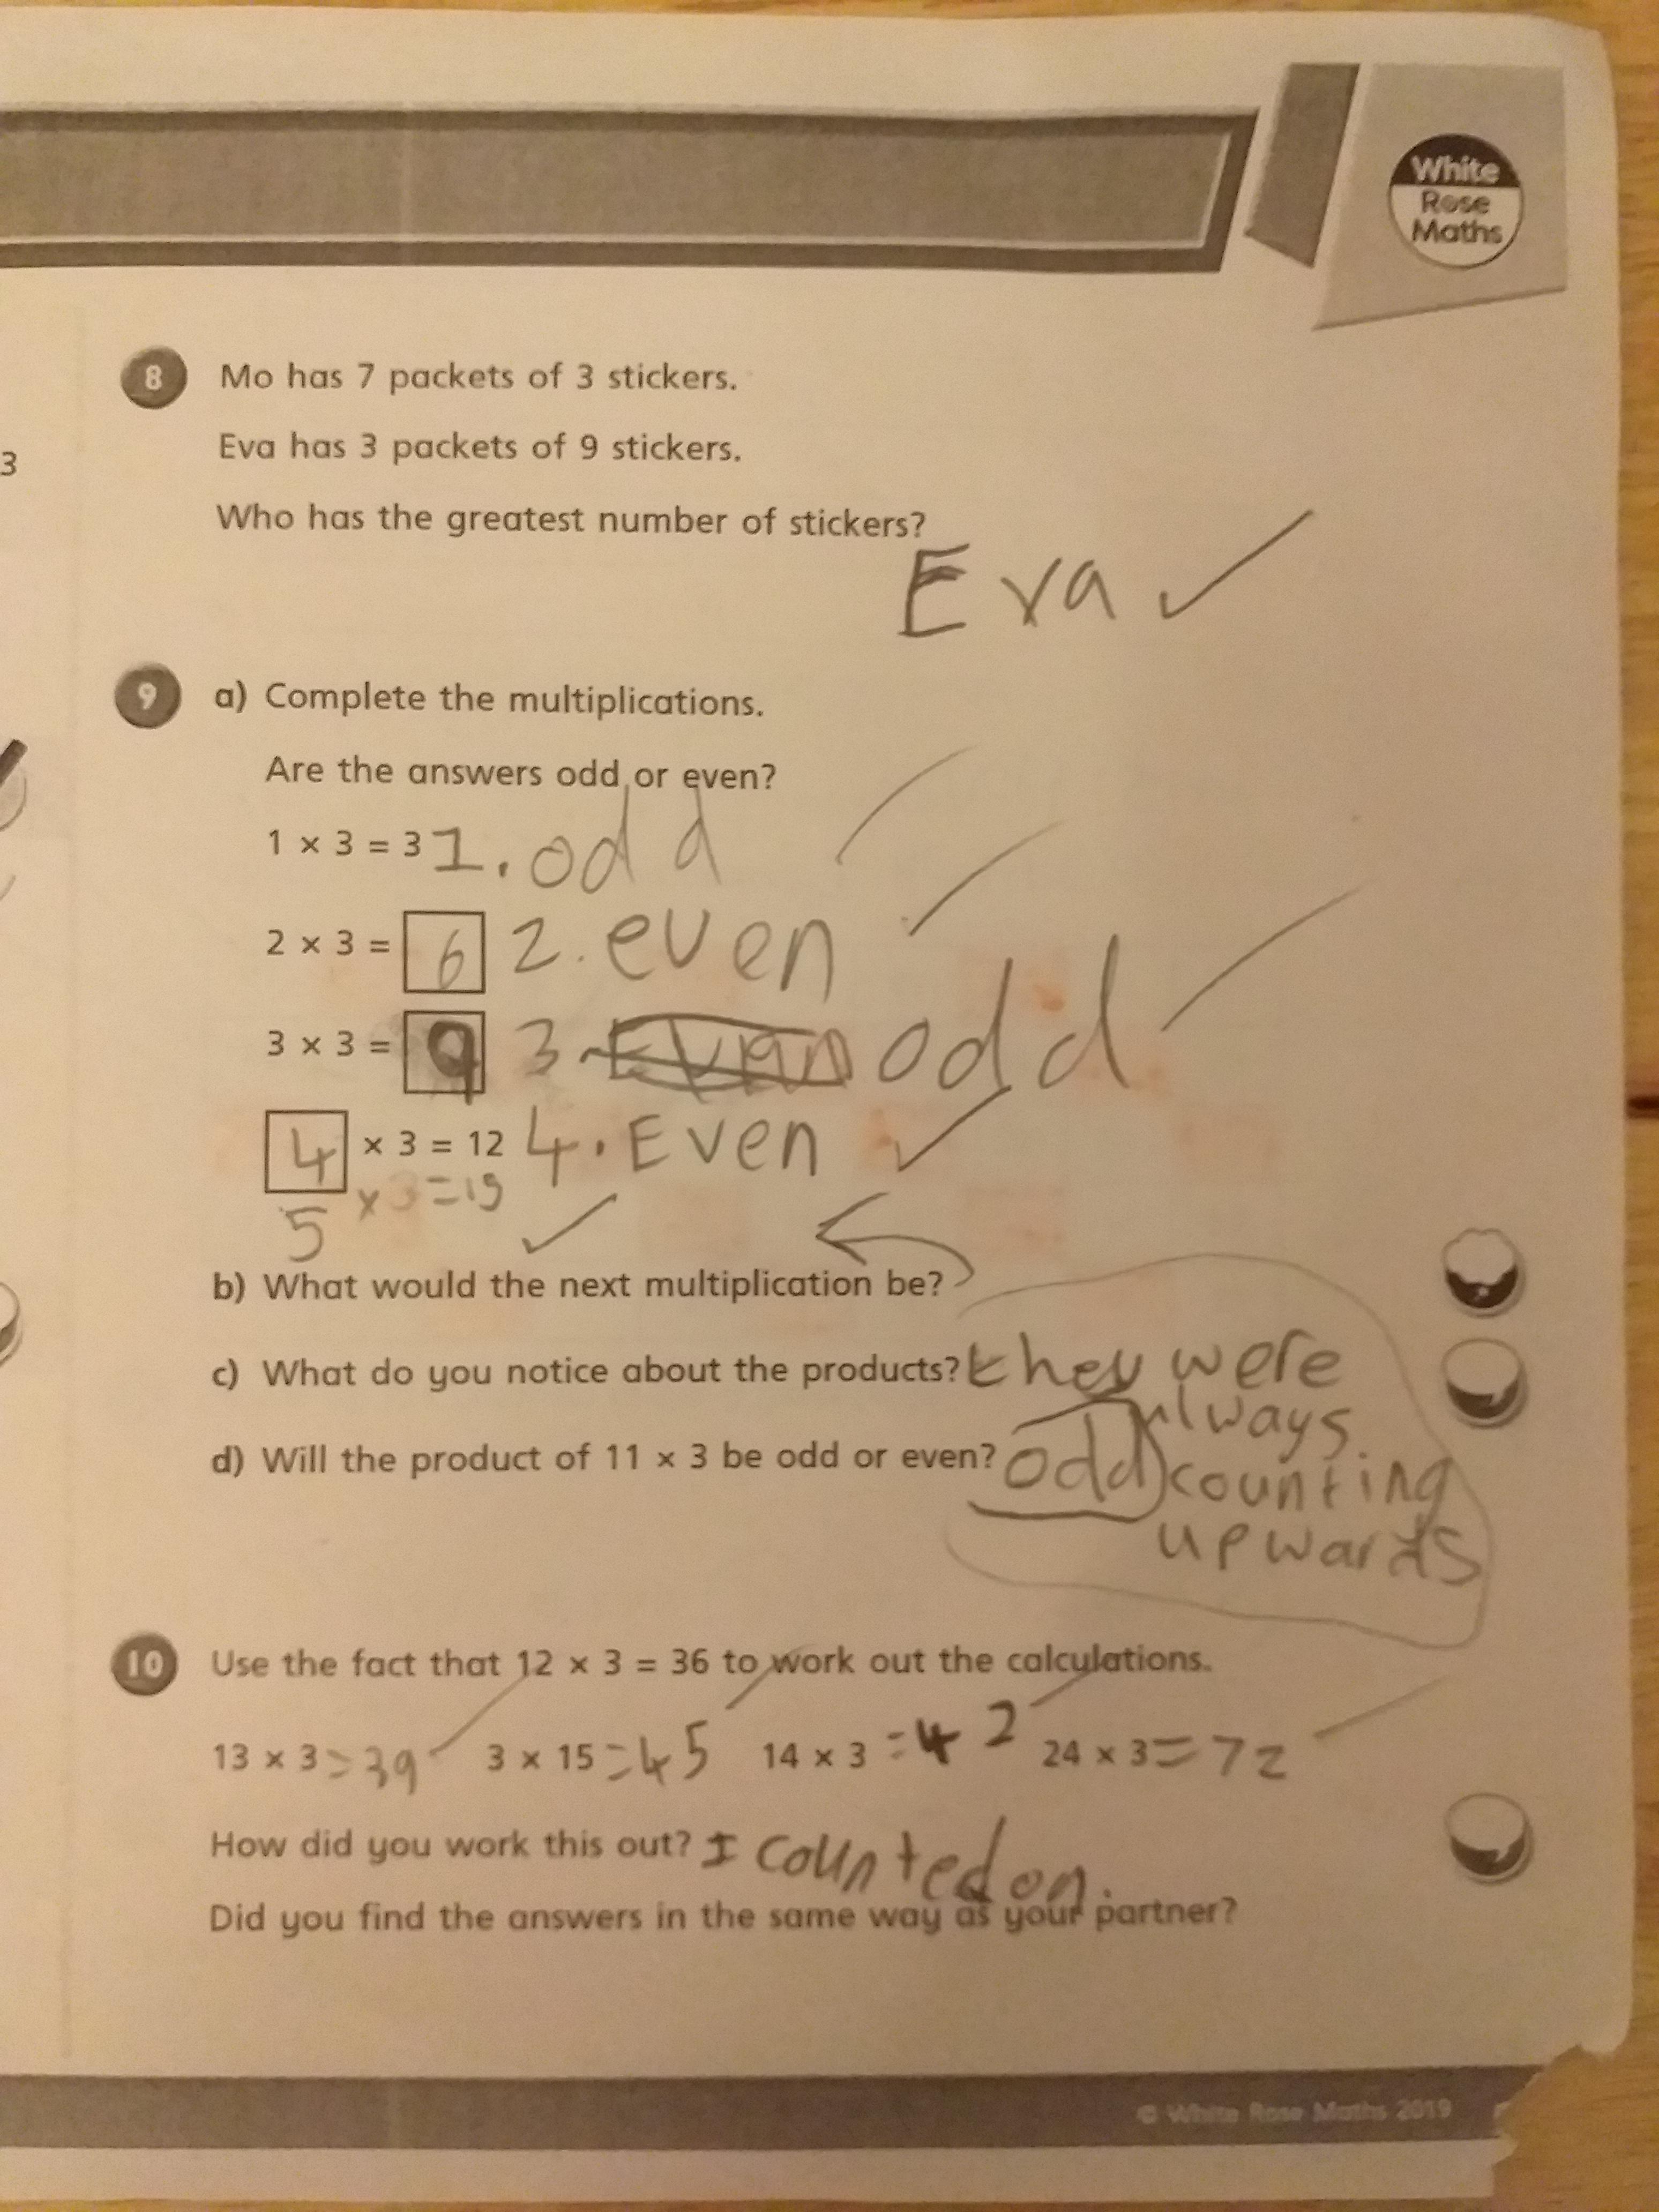 White
Rose
Maths
3
8 Mo has 7 packets of 3 stickers.
Eva has 3 packets of 9 stickers.
Who has the greatest number of stickers?
Eva
9 a) Complete the multiplications.
Are the answers odd or even?
1 × 3 = 3 1. odd
2 × 3 = 6 2. even
3 × 3 = 9 3. Evan odd
4 × 3 = 12 4. Even
5 × 3 = 15
b) What would the next multiplication be?
c) What do you notice about the products? they were
always
d) Will the product of 11 × 3 be odd or even? odd counting
upwards
10 Use the fact that 12 × 3 = 36 to work out the calculations.
13 × 3 = 39 3 × 15 = 45 14 × 3 = 42 24 × 3 = 72
How did you work this out? I counted on.
Did you find the answers in the same way as your partner?
© White Rose Maths 2019